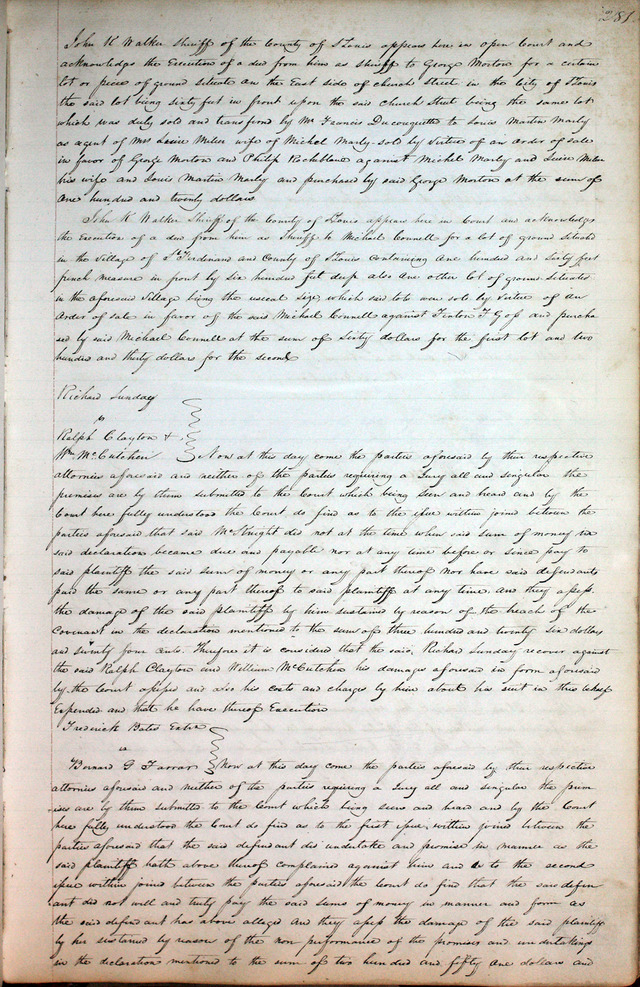 281
John K Walker Sheriff of the County of St Louis appears here in Open Court and
acknowledges the Execution of a deed from him as sheriff to George Morton for a certain
lot or piece of ground situate on the East side of church Street in the City of St Louis
the said lot being sixty feet in front upon the said Church Street being the same lot
which was duly sold and transferred by Mr Francis Ducouquette to Louis Martin Marly
as agent of Mrs Lesire wife of Michel Marly sold by virtue of an order of sale
in favor of George Morton and Philip Rochblane against Michel Marly and
his wife and Louis Martin Marly and purchased by said George Morton at the sum of
One hundred and twenty dollars
John K Walker Sheriff of the County of St Louis appears here in Court and acknowledges
the Execution of a deed from him as Sheriff to Michael Connell for a lot of ground Situated
in the Village of St Ferdinand and County of St Louis Containing One hundred and Sixty feet
french measure in front by Six hundred feet deep also One other lot of ground Situated
in the aforesaid Village being the useual Size, which said lots were sold by Virtue of an
Order of sale in favor of the said Michael Connell against F Gof and purcha
sed by said Michael Connell at the sum of Sixty dollars for the first lot and two
hundred and thirty dollars for the second
Richard Sunday
vs
Ralph Clayton &
Wm McCutchen Now at this day come the parties aforesaid by their respective
attornies aforesaid and neither of the parties requiring a Jury all and singular the
premises are by them submitted to the Court which being seen and heard and by the
Court here fully understood the Court do find as to the issue within joined between the
parties aforesaid that said McKnight did not at the time when said sum of money in
said declaration became due and payable nor at any time before or since pay to
said plaintiff the said sum of money or any part thereof Nor have said defendants
paid the same or any part thereof to said plaintiff at any time. And they assess
the damage of the said plaintiff by him sustained by reason of the breach of the
Covenant in the declaration mentioned to the sum of three hundred and twenty six dollars
and seventy four cents. Therefore it is considered that the said, Richard Sunday recover against
the said Ralph Clayton and William McCutchen his damages aforesaid in form aforesaid
by the Court assessed and also his costs and charges by him about his suit in this behalf
Expended and that he have thereof Execution
Frederick Bates Extr
vs
Bernard G Farrar Now at this day come the parties aforesaid by their respective
attornies aforesaid and neither of the parties requiring a Jury all and singular the prem
ises are by them submitted to the Court which being seen and heard and by the Court
here fully understood the Court do find as to the first issue, within joined between the
parties aforesaid that the said defendant did undertake and promise in manner as the
said plaintiff hath above thereof complained against him and as to the second
issue within joined between the parties aforesaid the Court do find that the said defen
dant did not well and truly pay the said sums of money in manner and form as
the said defendant has above alleged and they assess the damage of the said plaintiff
by her sustained by reason of the non performance of the promises and undertakings
in the declaration mentioned to the sum of two hundred and fifty one dollars and